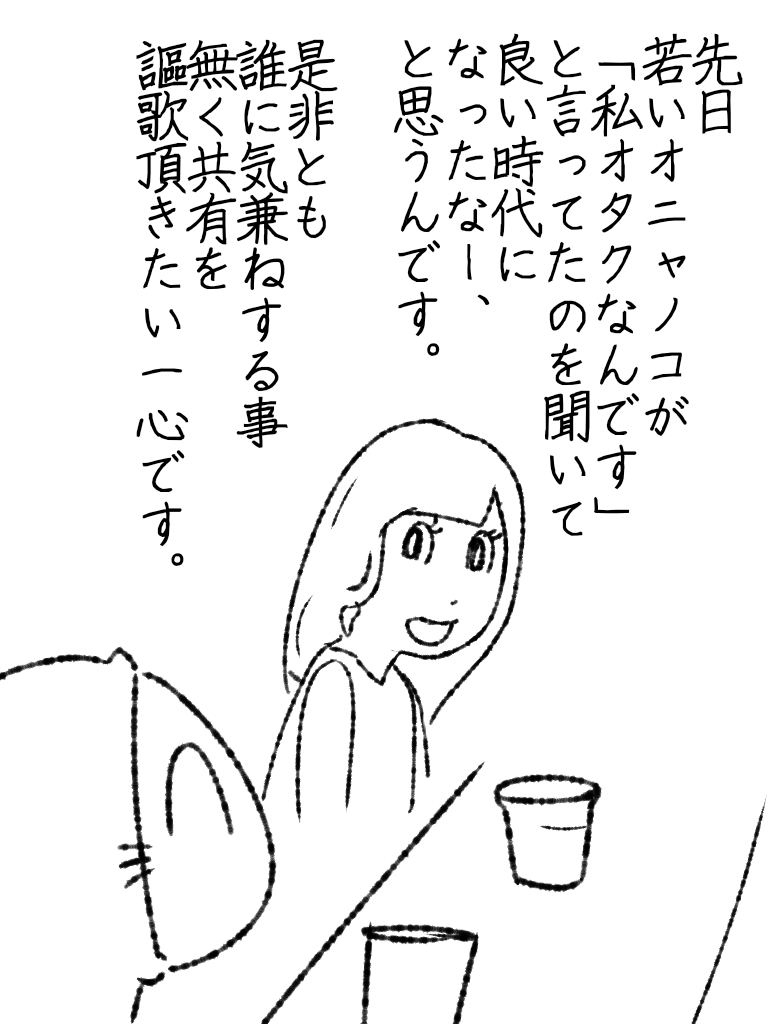 先日
若いオニャノコが
「私オタクなんです」
と言ってたのを聞いて
良い時代に
なったなー、
と思うんです。
是非とも
誰に気兼ねする事
無く共有を
謳歌頂きたい一心です。